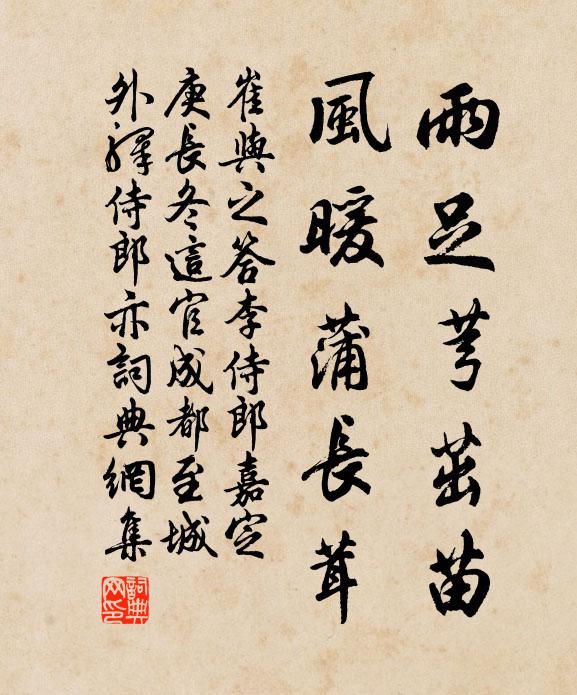 雨足芎茁苗
風暖蒲長茸
崔與之答李侍郎嘉定
庚長冬這官成都至城
外驛侍郎亦詞典網集
詞典網印